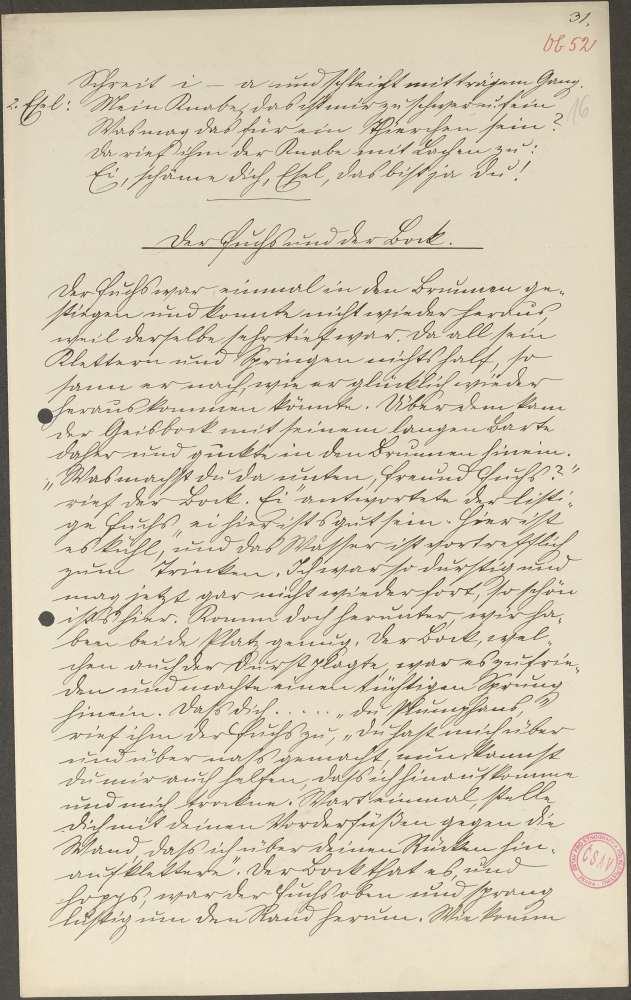 31.
Ob 52
16
Schreit i – a und schleicht mit trägem Gang.
2. Esel: Mein Knabe, das ist mir zu schwer u. fein
Was mag das für ein Thierchen sein?
Da rief ihm der Knabe mit Lachen zu:
Ei, schäme dich, Esel, das bist ja du!
Der Fuchs und der Bock.
Der Fuchs war einmal in den Brunnen ge-
stiegen und konnte nicht wieder heraus,
weil derselbe sehr tief war. Da all sein
Klettern und Springen nichts half, so
sann er nach, wie er glücklich wieder
herauskommen könnte. Über dem kam
der Geisbock mit seinem langen Barte
daher und guckte in den Brunnen hinein.
„Was machst du da unten, Freund Fuchs?"
rief der Bock. Ei" antwortete der listi-
ge Fuchs, ei hier ist's gut sein. Hier ist
es kühl," und das Wasser ist vortrefflich
zum Trinken. Ich war so durstig und
mag jetzt gar nicht wieder fort, so schön
ist's hier. Komm doch herunter, wir ha-
ben beide Platz genug. Der Bock, wel-
chen auch der Durst plagte, war es zufrie-
den und machte einen tüchtigen Sprung
hinein. Daß dich..... „du Plumphans,"
rief ihm der Fuchs zu, „du hast mich über
und über naß gemacht, nun kannst
du mir auch helfen, daß ich hinaufkomme
und mich trockne. Wart einmal, stelle
dich mit deinen Vorderfüßen gegen die
Wand, daß ich über deinen Rücken hin-
aufklettere". Der Bock that es, und
hopps, war der Fuchs oben und sprang
lustig um den Rand herum. Wie komm
ČSAV